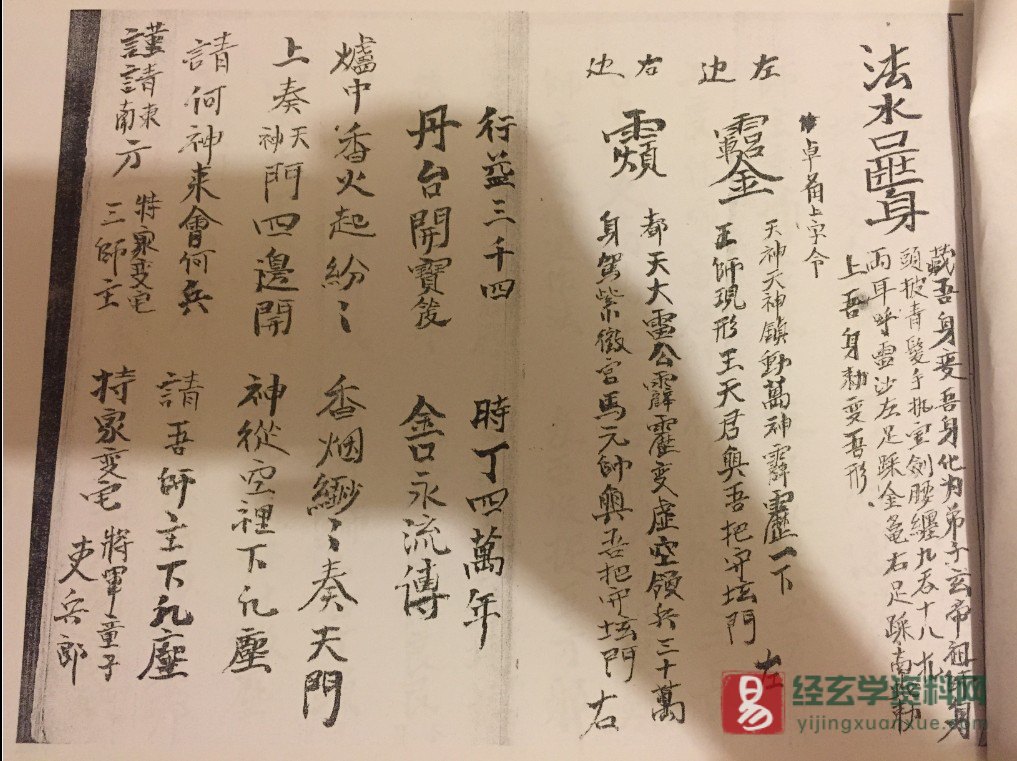 法水口匨身
藏吾身变吾身化为弟子玄帝祖師身
頭披青髮手执宝劍腰纏九吞十八
两耳呼雷沙左足踩金龟右足踩南蛇勅
上吾身勅变吾形
卓角上字令
左边
金
天神天神鎮動萬神霹靂一下
王師現形王天君與吾把守坛門 左
右边
都天大雷公霹靂变虚空領兵三十萬
身篤紫微宫馬元帥與吾把守坛門 右
行益三千四 時丁四萬年
丹台開寶後 金口永流傳
爐中香火起紛〻 香烟緲〻奏天門
上奏天神門四邊開 神從空裡下凡塵
請何神来會何兵 請吾師主下凡塵
謹請東南方 特家变宅三師主 持家变宅 將軍童子吏兵郎
易
经玄学资料网
yijingxuanxue.com